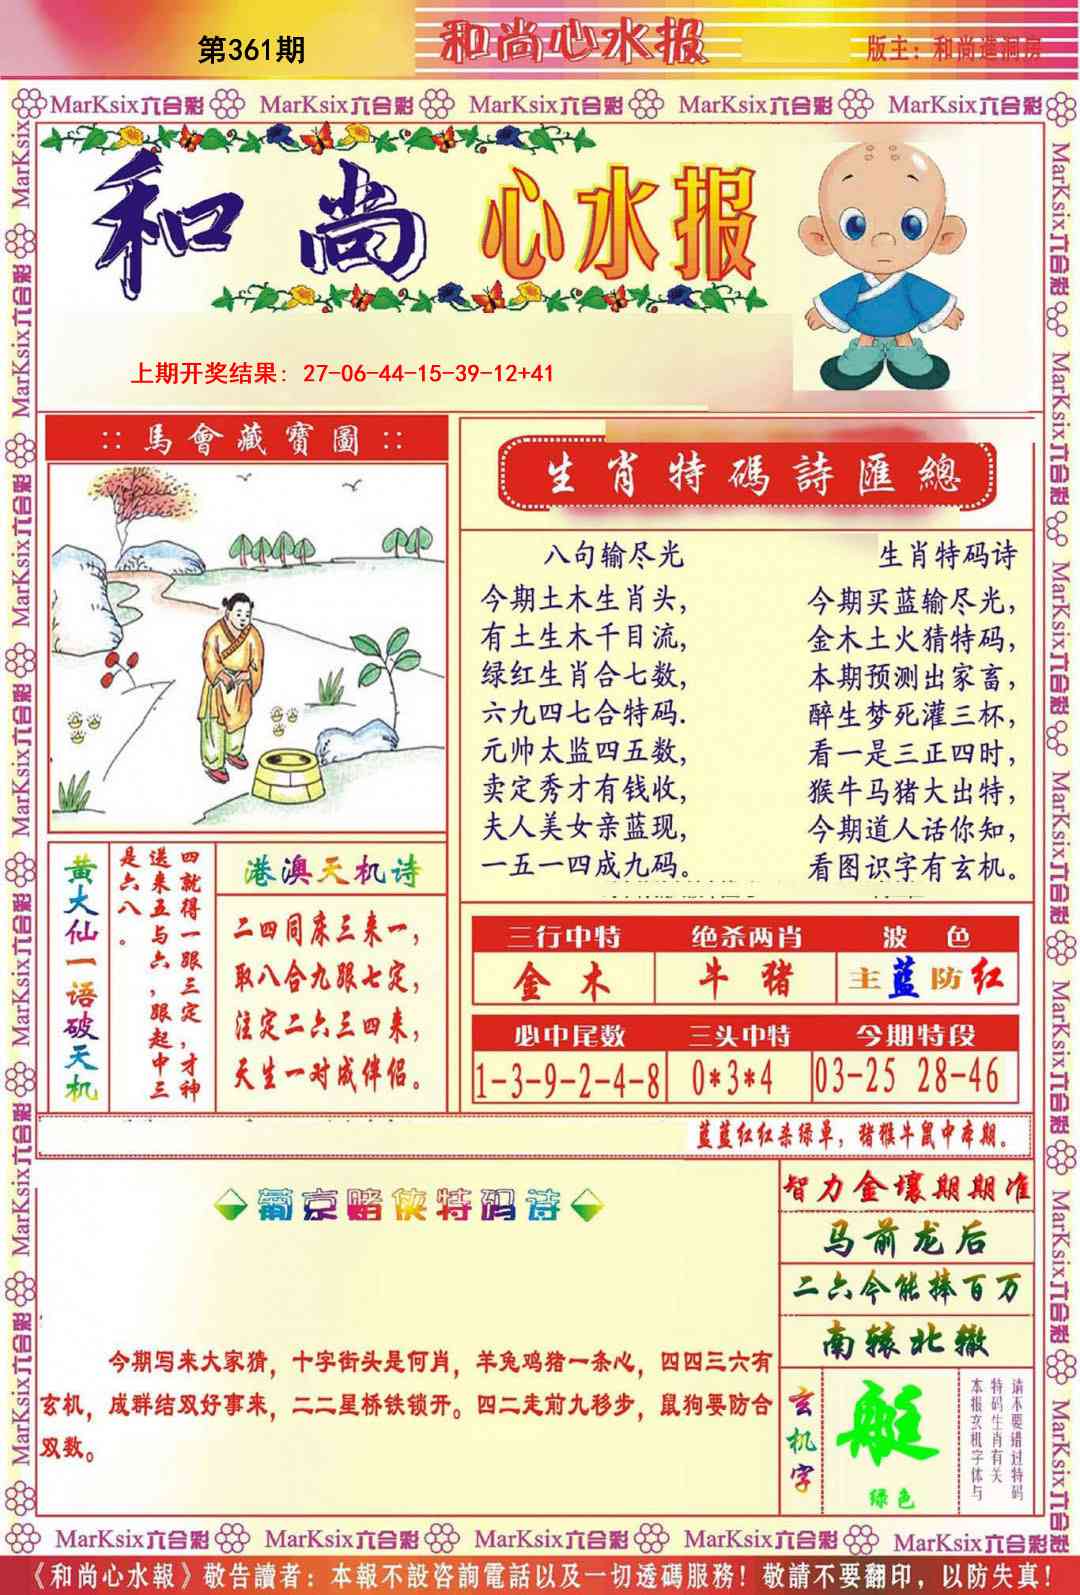 第361期
和尚心水报
版主：和尚造洞房
MarKsix六合彩 MarKsix六合彩 MarKsix六合彩 MarKsix六合彩 MarKsix六合彩
和尚 心水报
上期开奖结果: 27-06-44-15-39-12+41
:: 馬會藏寶圖 ::
生肖特碼詩匯總
八句输尽光
今期土木生肖头，
有土生木千目流，
绿红生肖合七数，
六九四七合特码.
元帅太监四五数，
卖定秀才有钱收，
夫人美女亲蓝现，
一五一四成九码。
生肖特码诗
今期买蓝输尽光，
金木土火猜特码，
本期预测出家畜，
醉生梦死灌三杯，
看一是三正四时，
猴牛马猪大出特，
今期道人话你知，
看图识字有玄机。
黄大仙一语破天机
四就得一跟三定，才神
送来五与六，跟起中三
是六八。
港澳天机诗
二四同床三来一，
取八合九跟七定，
注定二六三四来，
天生一对成伴侣。
三行中特 绝杀两肖 波色
金木 牛猪 主蓝防红
必中尾数 三头中特 今期特段
1-3-9-2-4-8 0*3*4 03-25 28-46
蓝蓝红红杀绿单，猪猴牛鼠中本期。
葡京赌侠特码诗
今期写来大家猜，十字街头是何肖，羊兔鸡猪一条心，四四三六有
玄机，成群结双好事来，二二星桥铁锁开。四二走前九移步，鼠狗要防合
双数。
智力金壤期期准
马前龙后
二六今能捧百万
南辕北辙
玄机字
艇
绿色
请不要错过特码
特码生肖有关
本报玄机字体与
MarKsix六合彩 MarKsix六合彩 MarKsix六合彩 MarKsix六合彩 MarKsix六合彩
《和尚心水報》敬告讀者：本報不設咨詢電話以及一切透碼服務！敬請不要翻印，以防失真！